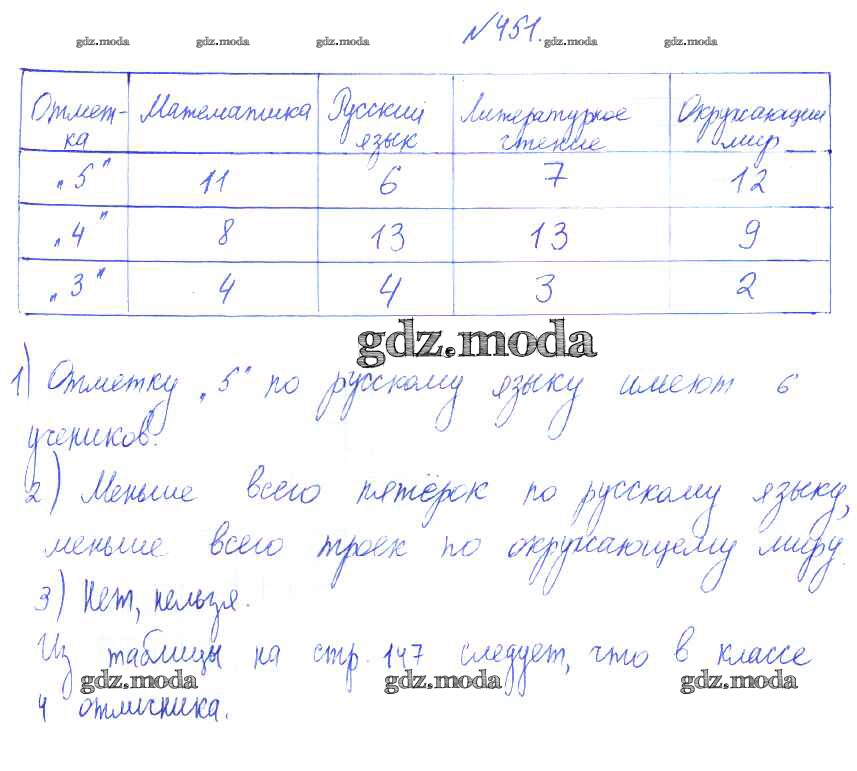 №451.
gdz.moda gdz.moda gdz.moda gdz.moda gdz.moda gdz.moda
Отмет- Математика Русский Литературное Окружающий
ка язык чтение мир
„5" 11 6 7 12
„4" 8 13 13 9
„3" 4 4 3 2
gdz.moda
1) Отметку „5" по русскому языку имеют 6
учеников.
2) Меньше всего пятёрок по русскому языку,
меньше всего троек по окружающему миру.
3) Нет, нельзя.
Из таблицы на стр. 147 следует, что в классе
gdz.moda gdz.moda gdz.moda
4 отличника.